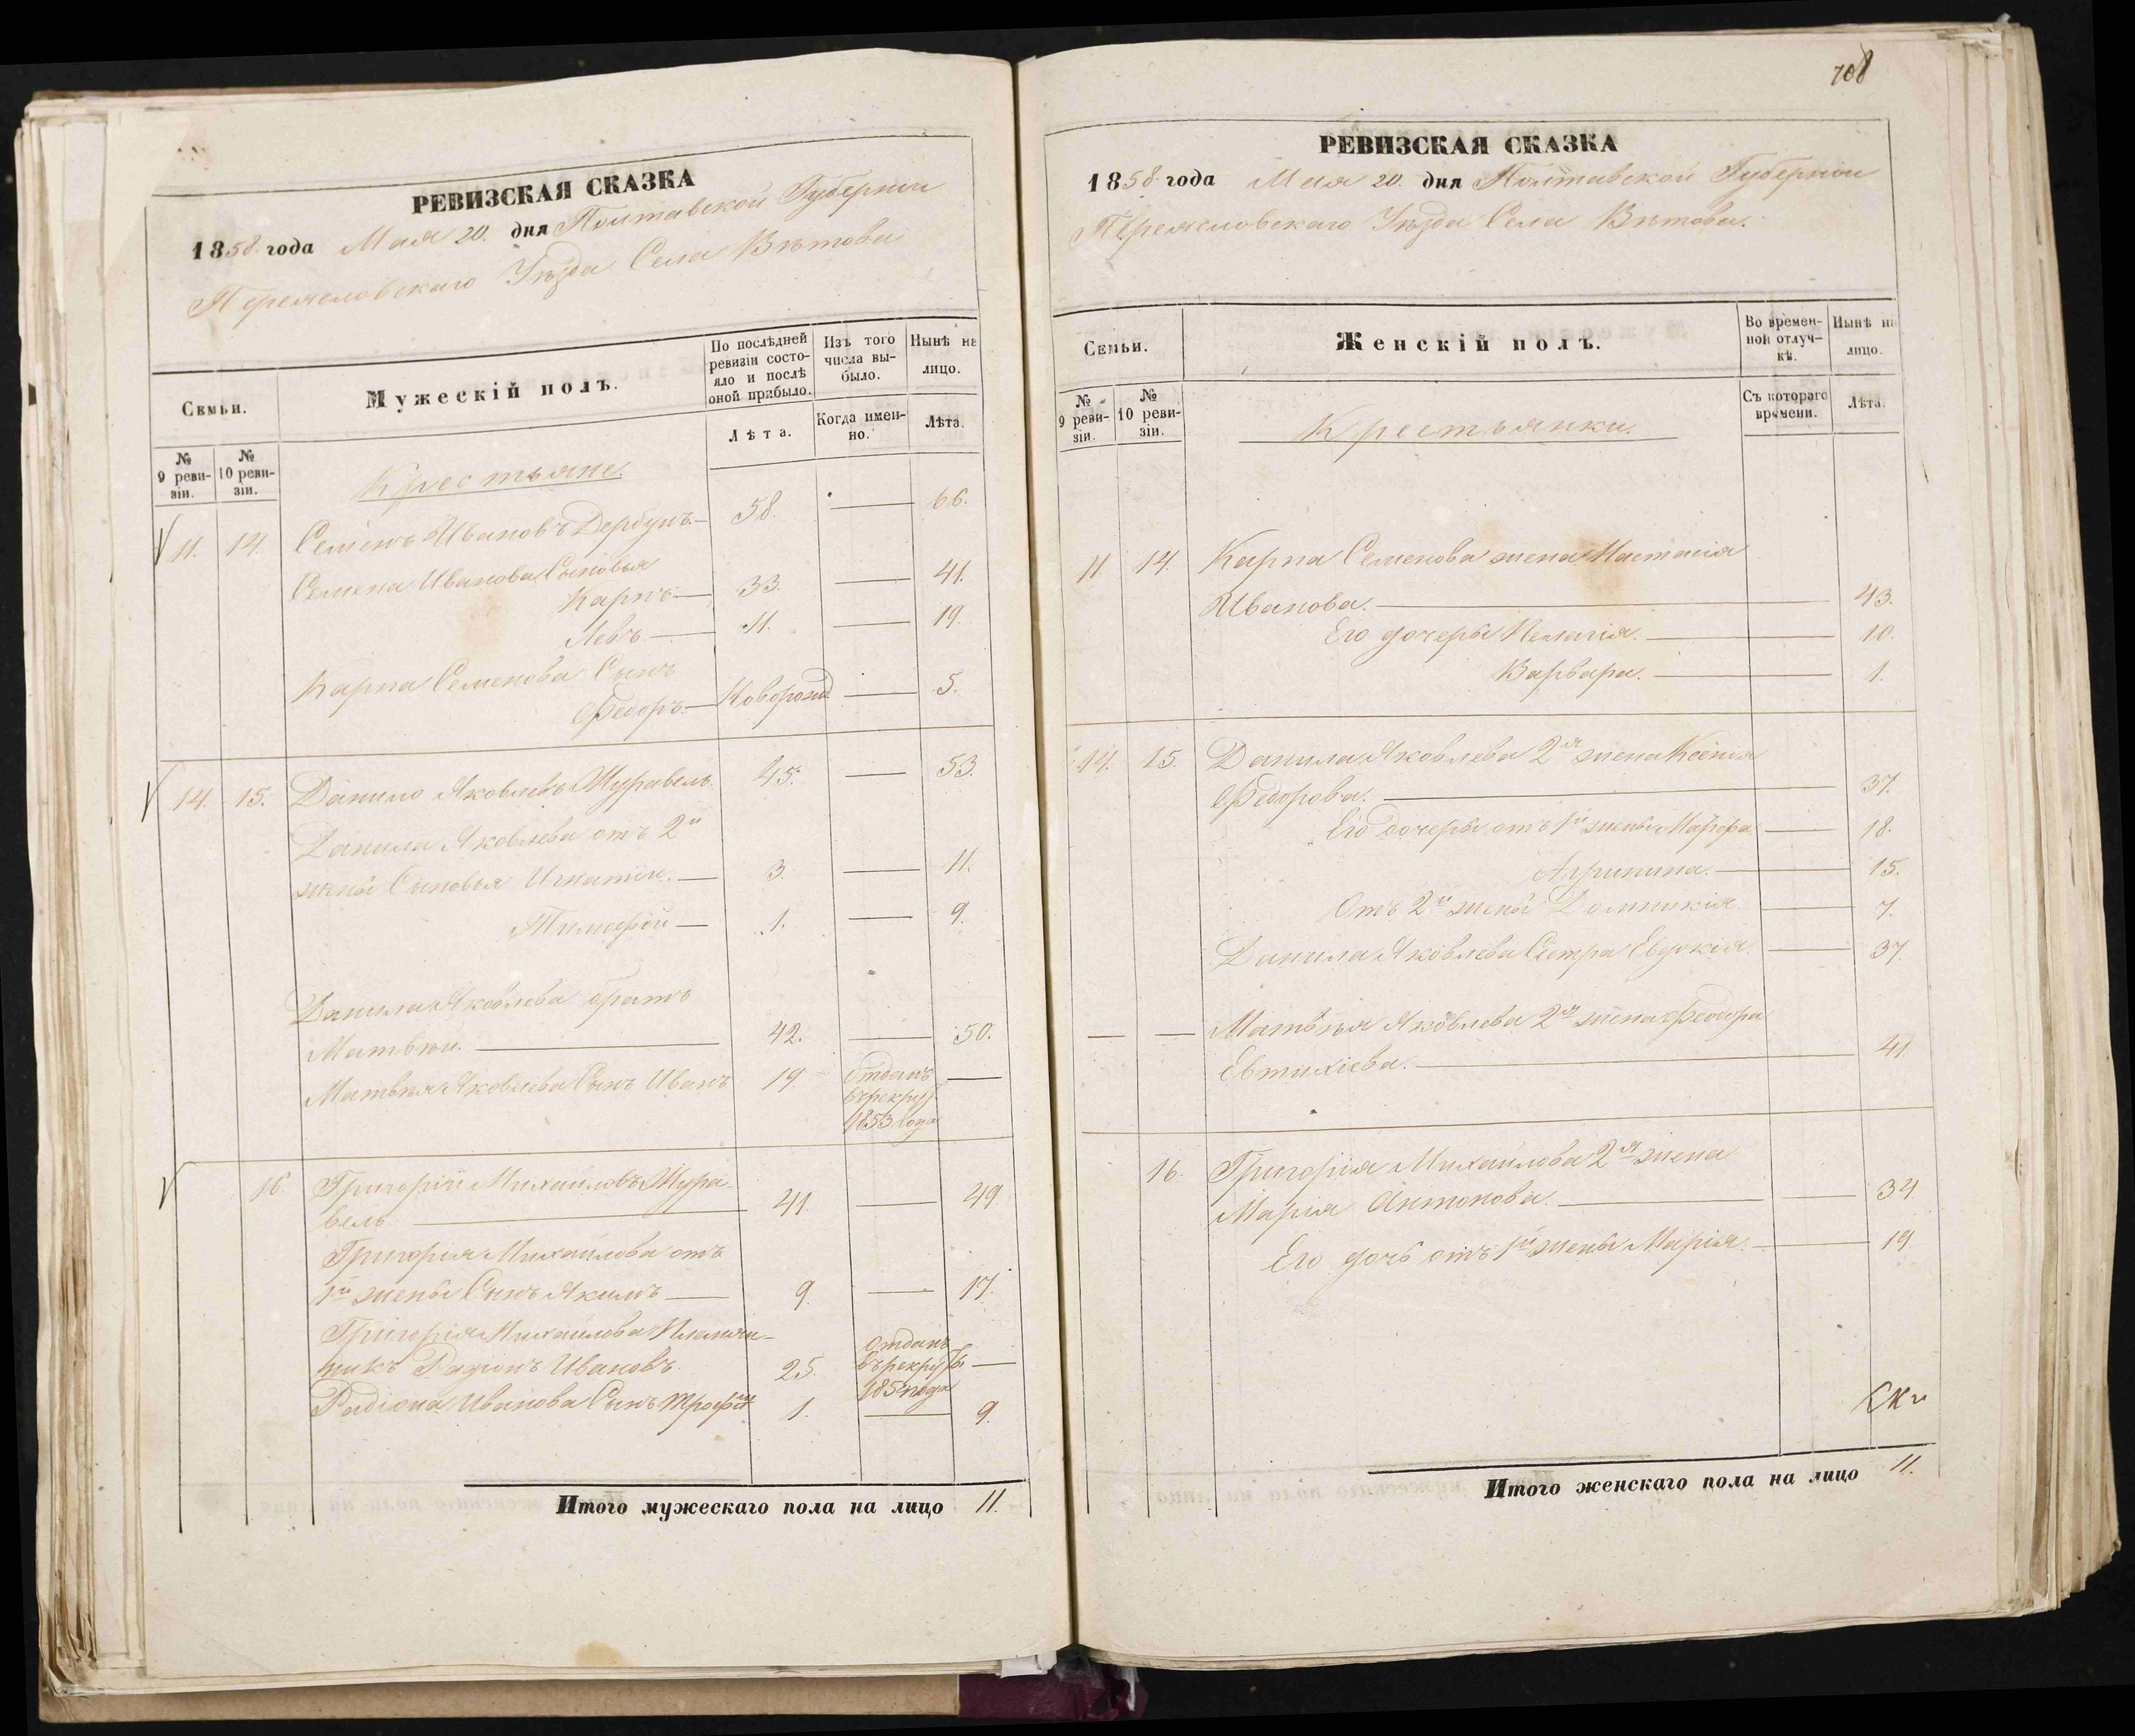 РЕВИЗСКАЯ СКАЗКА
1858 года Мая 20. дня Полтавской Губернии
Переяславскаго Уѣзда Села Вѣтова
Семьи.
Мужескій полъ.
По послѣдней ревизіи состояло и послѣ оной прибыло.
Изъ того числа выбыло.
Нынѣ на лицо.
№ 9 ревизіи.
№ 10 ревизіи.
Лѣта.
Когда именно.
Лѣта.
Крестьяне.
11. 14. Семенъ Ивановъ Дербунъ. — 58. — 66.
Семена Иванова Сыновья
Карпъ — 33. — 41.
Левъ — 11. — 19.
Карпа Семенова Сынъ
Федоръ. — Новорожд — 5.
14. 15. Данило Яковлевъ Журавель. 45. — 53.
Данила Яковлева отъ 2й
жены Сыновья Игнатій. — 3. — 11.
Тимофей — 1. — 9.
Данила Яковлева братъ
Матвѣй. — 42. — 50.
Матвѣя Яковлева Сынъ Иванъ 19 Отданъ —
въ рекру
1853 года
16 Григорій Михайловъ Жура-
вель. — 41. — 49.
Григорія Михайлова отъ
1й жены Сынъ Якимъ — 9. — 17.
Григорія Михайлова Племян-
никъ Радіонъ Ивановъ. 25. Отданъ
въ рекруты —
185 года
Радіона Иванова Сынъ Трофим 1. — 9.
Итого мужескаго пола на лицо 11.
708
РЕВИЗСКАЯ СКАЗКА
1858 года Мая 20. дня Полтавской Губерніи
Переяславскаго Уѣзда Села Вѣтова.
Семьи.
Женскій полъ.
Во временной отлучкѣ.
Нынѣ на лицо.
№ 9 ревизіи.
№ 10 ревизіи.
Съ котораго времени.
Лѣта.
Крестьянки.
11. 14. Карпа Семенова жена Настасія
Иванова. — 43.
Его дочери Пелагія. — 10.
Варвара. — 1.
14. 15. Данила Яковлева 2я жена Ксенія
Федорова. — 37.
Его дочери отъ 1й жены Марфа. — 18.
Агрипина. — 15.
Отъ 2й жены Домникія — 7.
Данила Яковлева Сестра Евдокія — 37
— — Матвѣя Яковлева 2я жена Федора
Евтихіева. — 41.
16. Григорія Михайлова 2я жена
Марія Антонова. — 34
Его дочь отъ 1й жены Марія. — 19
Итого женскаго пола на лицо 11.